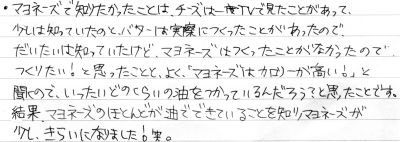 ・マヨネーズで知りたかったことは、チーズは一度TVで見たことがあって、
少しは知っていたのと、バターは実際につくったことがあったので、
だいたいは知っていたけど、マヨネーズはつくったことがなかったので
つくりたい！と思ったことと、よく、「マヨネーズはカロリーが高い！」と
聞くので、いったいどのくらいの油をつかっているんだろう？と思ったことです。
結果、マヨネーズのほとんどが油でできていることを知りマヨネーズが
少し、きらいになりました！笑。